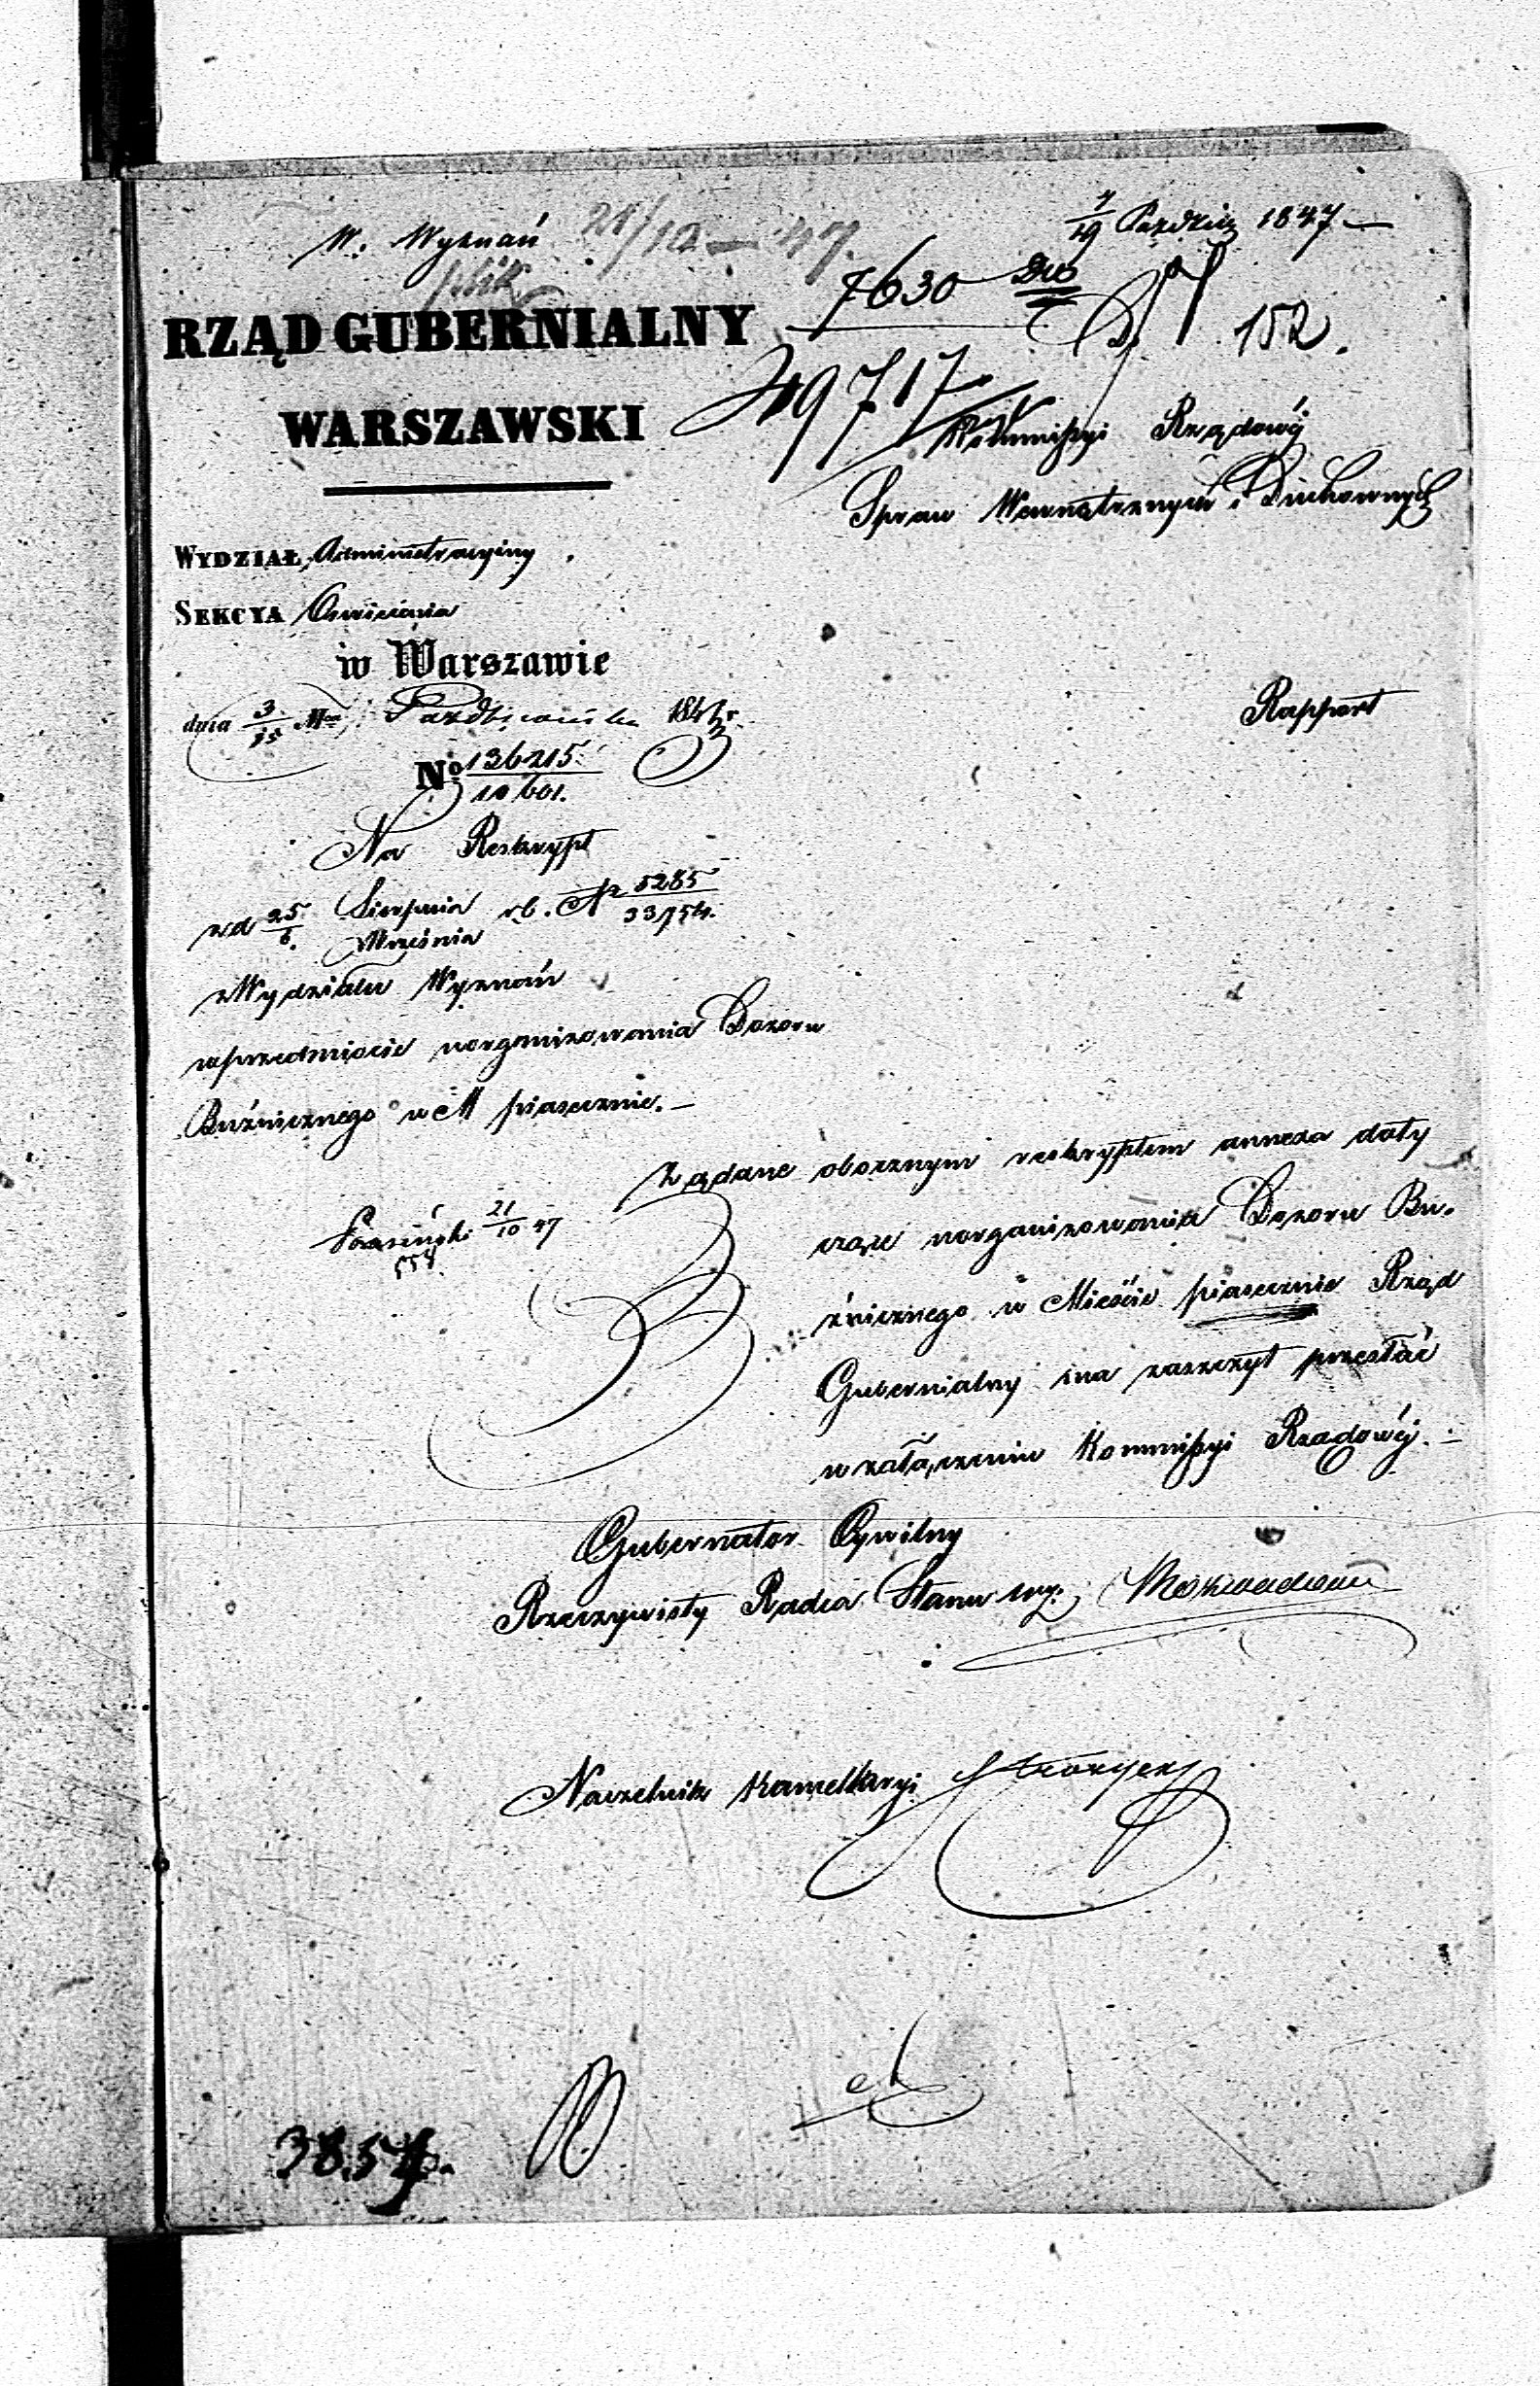 W. Wyznań 21/10 – 47.
7/19 Paździer 1847 —
7630
152.
49717
RZĄD GUBERNIALNY
WARSZAWSKI
Kommissyi Rządowéj
Spraw Wewnętrznych i Duchownych
WYDZIAŁ Administracyiny
SEKCYA Oświecenia
w Warszawie
dnia 3/15 Mca Października 1847 r.
Rapport
No 136215/10601.
Na Reskrypt
z d 25/6. Sierpnia/Września r.b. No 5285/33754.
z Wydziału Wyznań
w przedmiocie uorganizowania Dozoru
Bóźnicznego w M Piasecznie. —
Żądane obocznym reskryptem annexa doty
21/10 47
czące uorganizowania Dozoru Bu-
źnicznego w Mieście Piasecznie Rząd
Gubernialny ma zaszczyt przesłać
w załączeniu Kommissyi Rządowéj. —
Gubernator Cywilny
Rzeczywisty Radca Stanu
Naczelnik Kancellaryi
3854.